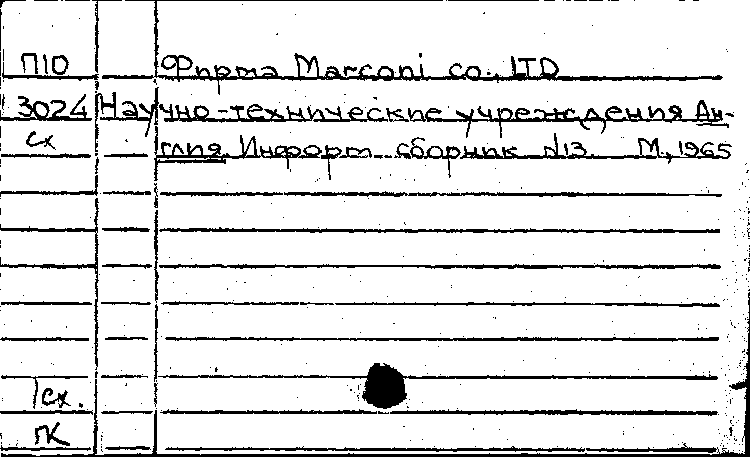 П10 Фирма Marconi co., LTD
3024 Научно-технические учреждения Ан-
сх глия. Информ. сборник N13. М., 1965
1сх.
ПК